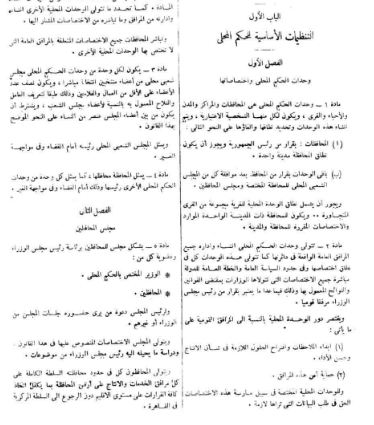 الباب الأول
التنظيمات الأساسية للحكم المحلى
الفصل الأول
وحدات الحكم المحلى واختصاصاتها
مادة ١ – وحدات الحكم المحلى هى المحافظات والمراكز والمدن
والأحياء والقرى، ويكون لكل منها الشخصية الاعتبارية، ويتم
انشاء هذه الوحدات وتحديد نطاقها والغاؤها على النحو التالى :
(١) المحافظات : بقرار من رئيس الجمهورية ويجوز أن يكون
نطاق المحافظة مدينة واحدة .
(ب) باقى الوحدات بقرار من المحافظ . بعد موافقة كل من المجلس
الشعبى المحلى للمحافظة المختصة ومجلس المحافظين .
ويجوز أن يشمل نطاق الوحدة المحلية للقرية مجموعة من القرى
المتجاورة .. ويكون للمحافظة ذات المدينة الواحدة الموارد
والاختصاصات المقررة للمحافظة والمدينة .
مادة ٢ – تتولى وحدات الحكم المحلى انشاء وادارة جميع
المرافق العامة الواقعة فى دائرتها كما تتولى هذه الوحدات كل فى
نطاق اختصاصها وفى حدود السياسة العامة والخطة العامة للدولة
مباشرة جميع الاختصاصات التى تتولاها الوزارات بمقتضى القوانين
واللوائح المعمول بها وذلك فيما عدا ما يعتبر بقرار من رئيس مجلس
الوزراء مرفقا قوميا .
ويقتصر دور الوحدة المحلية بالنسبة الى المرافق القومية على
ما يأتى :
(١) ابداء الملاحظات واقتراح الحلول اللازمة فى شأن الانتاج
وحسن الأداء .
(٢) حماية أمن هذه المرافق .
وللوحدات المحلية المختصة فى سبيل ممارسة هذه الاختصاصات
الحق فى طلب البيانات التى تراها لازمة .
المادة . كما تحدد ما تتولى الوحدات المحلية الأخرى انشاءه
وادارته من المرافق وما تباشره من الاختصاصات المشار اليها .
وتباشر المحافظات جميع الاختصاصات المتعلقة بالمرافق العامة التى
لا تختص بها الوحدات المحلية الأخرى .
مادة ٣ – يكون لكل وحدة من وحدات الحكم المحلى مجلس
شعبى محلى من أعضاء منتخبين انتخابا مباشرا، ويكون نصف عدد
الأعضاء على الأقل من العمال والفلاحين وذلك طبقا لتعريف العامل
والفلاح المعمول به بالنسبة لأعضاء مجلس الشعب، ويشترط أن
يكون من بين أعضاء المجلس عنصر من النساء على النحو الموضح
بهذا القانون .
ويمثل المجلس المحلى رئيسه أمام القضاء وفى مواجهة
الغير .
مادة ٤ – يمثل المحافظة محافظها، كما يمثل كل وحدة من وحدات
الحكم المحلى الأخرى رئيسها وذلك أمام القضاء وفى مواجهة الغير .
الفصل الثانى
مجلس المحافظين
مادة ٥ – يشكل مجلس للمحافظين برئاسة رئيس مجلس الوزراء
وعضوية كل من :
* الوزير المختص بالحكم المحلى .
* المحافظين .
ولرئيس المجلس دعوة من يرى حضوره جلسات المجلس من
الوزراء أو غيرهم .
ويتولى المجلس الاختصاصات المنصوص عليها فى هذا القانون .
ودراسة ما يحيله اليه رئيس مجلس الوزراء من موضوعات .
ويتولى المحافظون كل فى حدود محافظته السلطة الكاملة على
كل مرافق الخدمات والانتاج على أرض المحافظة بما يكفل اتخاذ
كافة القرارات على مستوى الاقليم دون الرجوع الى السلطة المركزية
فى القاهرة .